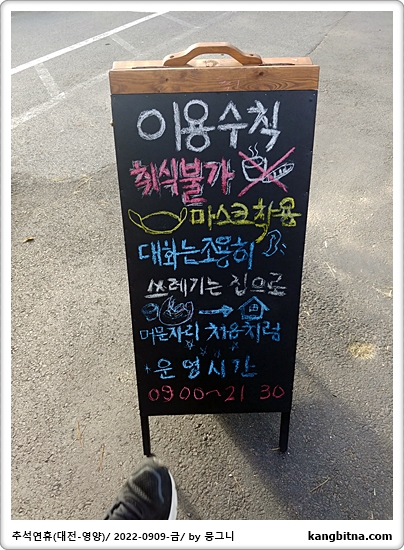 이용수칙
취식불가
마스크착용
대화는조용히
쓰레기는 집으로
머문자리 처음처럼
운영시간
09 00~21 30
추석연휴(대전-영양)/ 2022-0909-금/ by 뭉그니
kangbitna.com